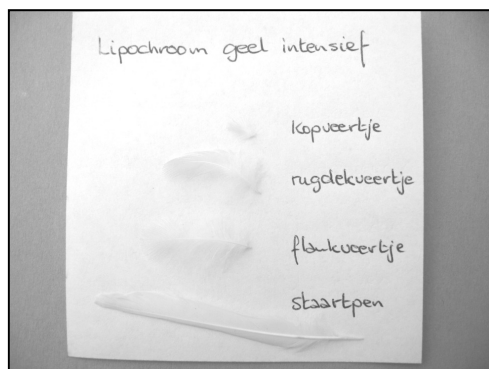 Lipochroom geel intensief
kopveertje
rugdekveertje
flankveertje
staartpen